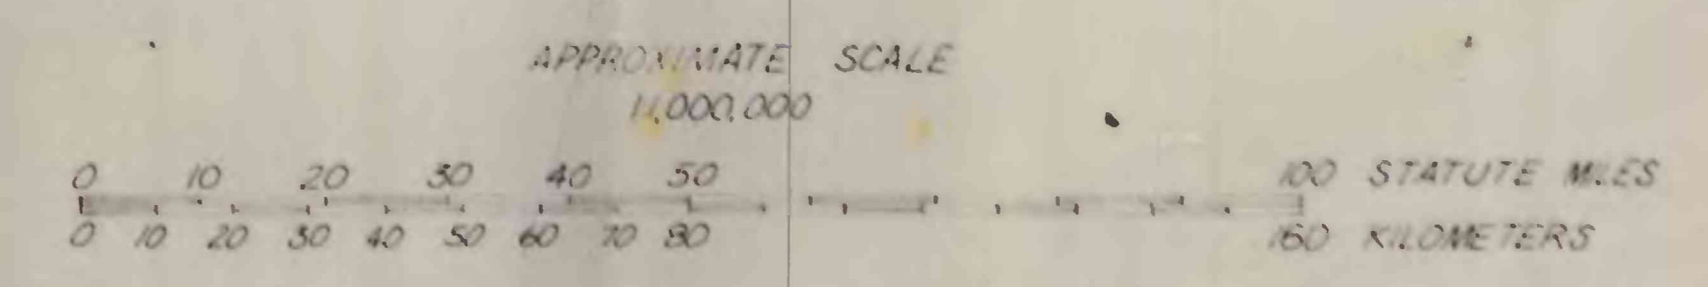 APPROXIMATE SCALE
1:1,000,000
0 10 20 30 40 50 100 STATUTE MILES
0 10 20 30 40 50 60 70 80 160 KILOMETERS